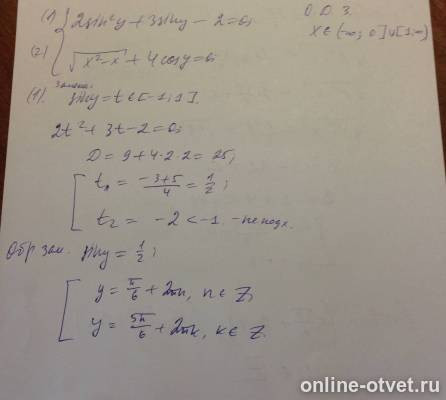 (1) { 2sin²y + 3siny - 2 = 0;
О.Д.З.
x ∈ (-∞; 0] ∪ [1; ∞)
(2) √x²-x + 4cosy = 0;
(1). Замена: siny = t ∈ [-1; 1].
2t² + 3t - 2 = 0;
D = 9 + 4·2·2 = 25;
[ t₁ = (-3+5)/4 = 1/2;
t₂ = -2 < -1. - не подх.
Обр зам. siny = 1/2;
[ y = π/6 + 2πn, n ∈ Z;
y = 5π/6 + 2πk, k ∈ Z.
online-otvet.ru